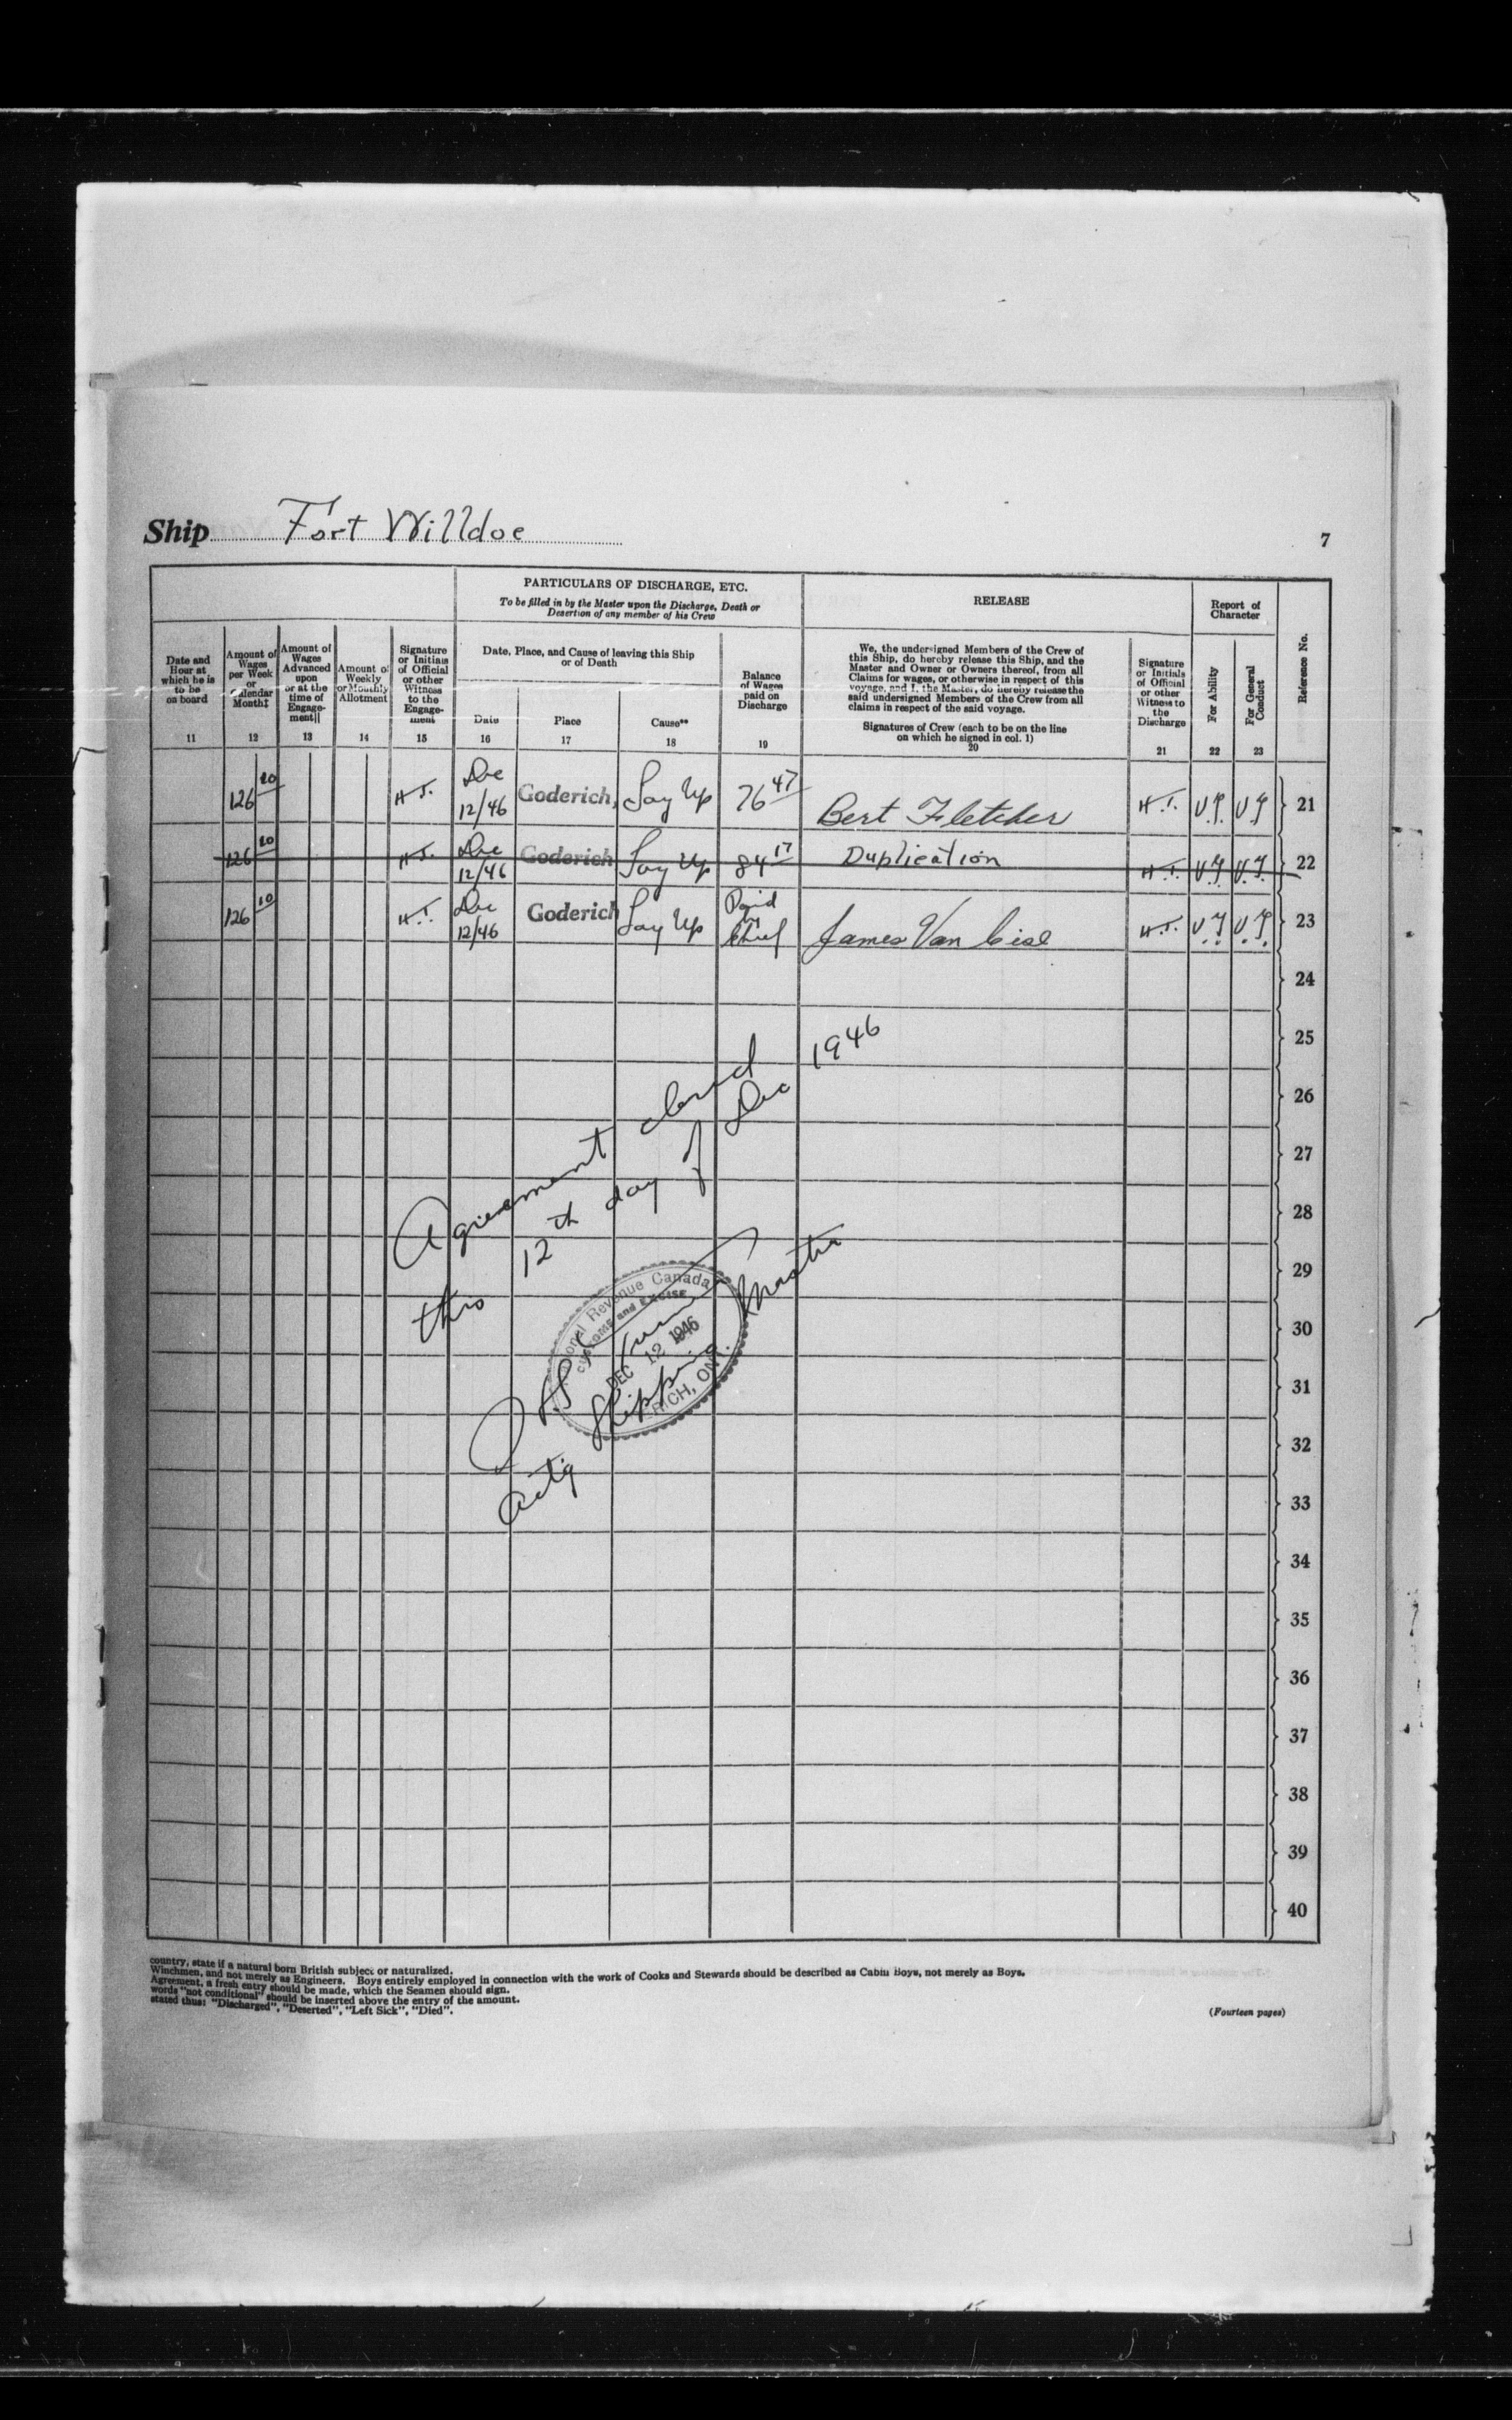 Ship Fort Willdoe
7
PARTICULARS OF DISCHARGE, ETC.
To be filled in by the Master upon the Discharge, Death or
Desertion of any member of his Crew
RELEASE
Report of
Character
Date and
Hour at
which he is
to be
on board
11
Amount of
Wages
per Week
or
Calendar
Month‡
12
Amount of
Wages
Advanced
upon
or at the
time of
Engage-
ment||
13
Amount of
Weekly
or Monthly
Allotment
14
Signature
or Initials
of Official
or other
Witness
to the
Engage-
ment
15
Date, Place, and Cause of leaving this Ship
or of Death
Date
16
Place
17
Cause**
18
Balance
of Wages
paid on
Discharge
19
We, the undersigned Members of the Crew of
this Ship, do hereby release this Ship, and the
Master and Owner or Owners thereof, from all
Claims for wages, or otherwise in respect of this
voyage, and I, the Master, do hereby release the
said undersigned Members of the Crew from all
claims in respect of the said voyage.
Signatures of Crew (each to be on the line
on which he signed in col. 1)
20
Signature
or Initials
of Official
or other
Witness to
the
Discharge
21
For Ability
22
For General
Conduct
23
Reference No.
126 10 H.T. Dec 12/46 Goderich, Lay Up 76 47 Bert Fletcher H.T. V.G. V.G. 21
126 10 H.T. Dec 12/46 Goderich Lay Up 84 17 Duplication H.T. V.G. V.G. 22
126 10 H.T. Dec 12/46 Goderich Lay Up Paid by Chief James Van Cise H.T. V.G. V.G. 23
24
25
26
27
28
29
30
31
32
33
34
35
36
37
38
39
40
Agreement closed
this 12th day of Dec 1946
Revenue Canada
Customs and Excise
DEC 12 1946
RICH, ONT.
Actg Shipping Master
country, state if a natural born British subject or naturalized.
Winchmen, and not merely as Engineers. Boys entirely employed in connection with the work of Cooks and Stewards should be described as Cabin Boys, not merely as Boys.
Agreement, a fresh entry should be made, which the Seamen should sign.
words "not conditional" should be inserted above the entry of the amount.
stated thus: "Discharged", "Deserted", "Left Sick", "Died".
(Fourteen pages)